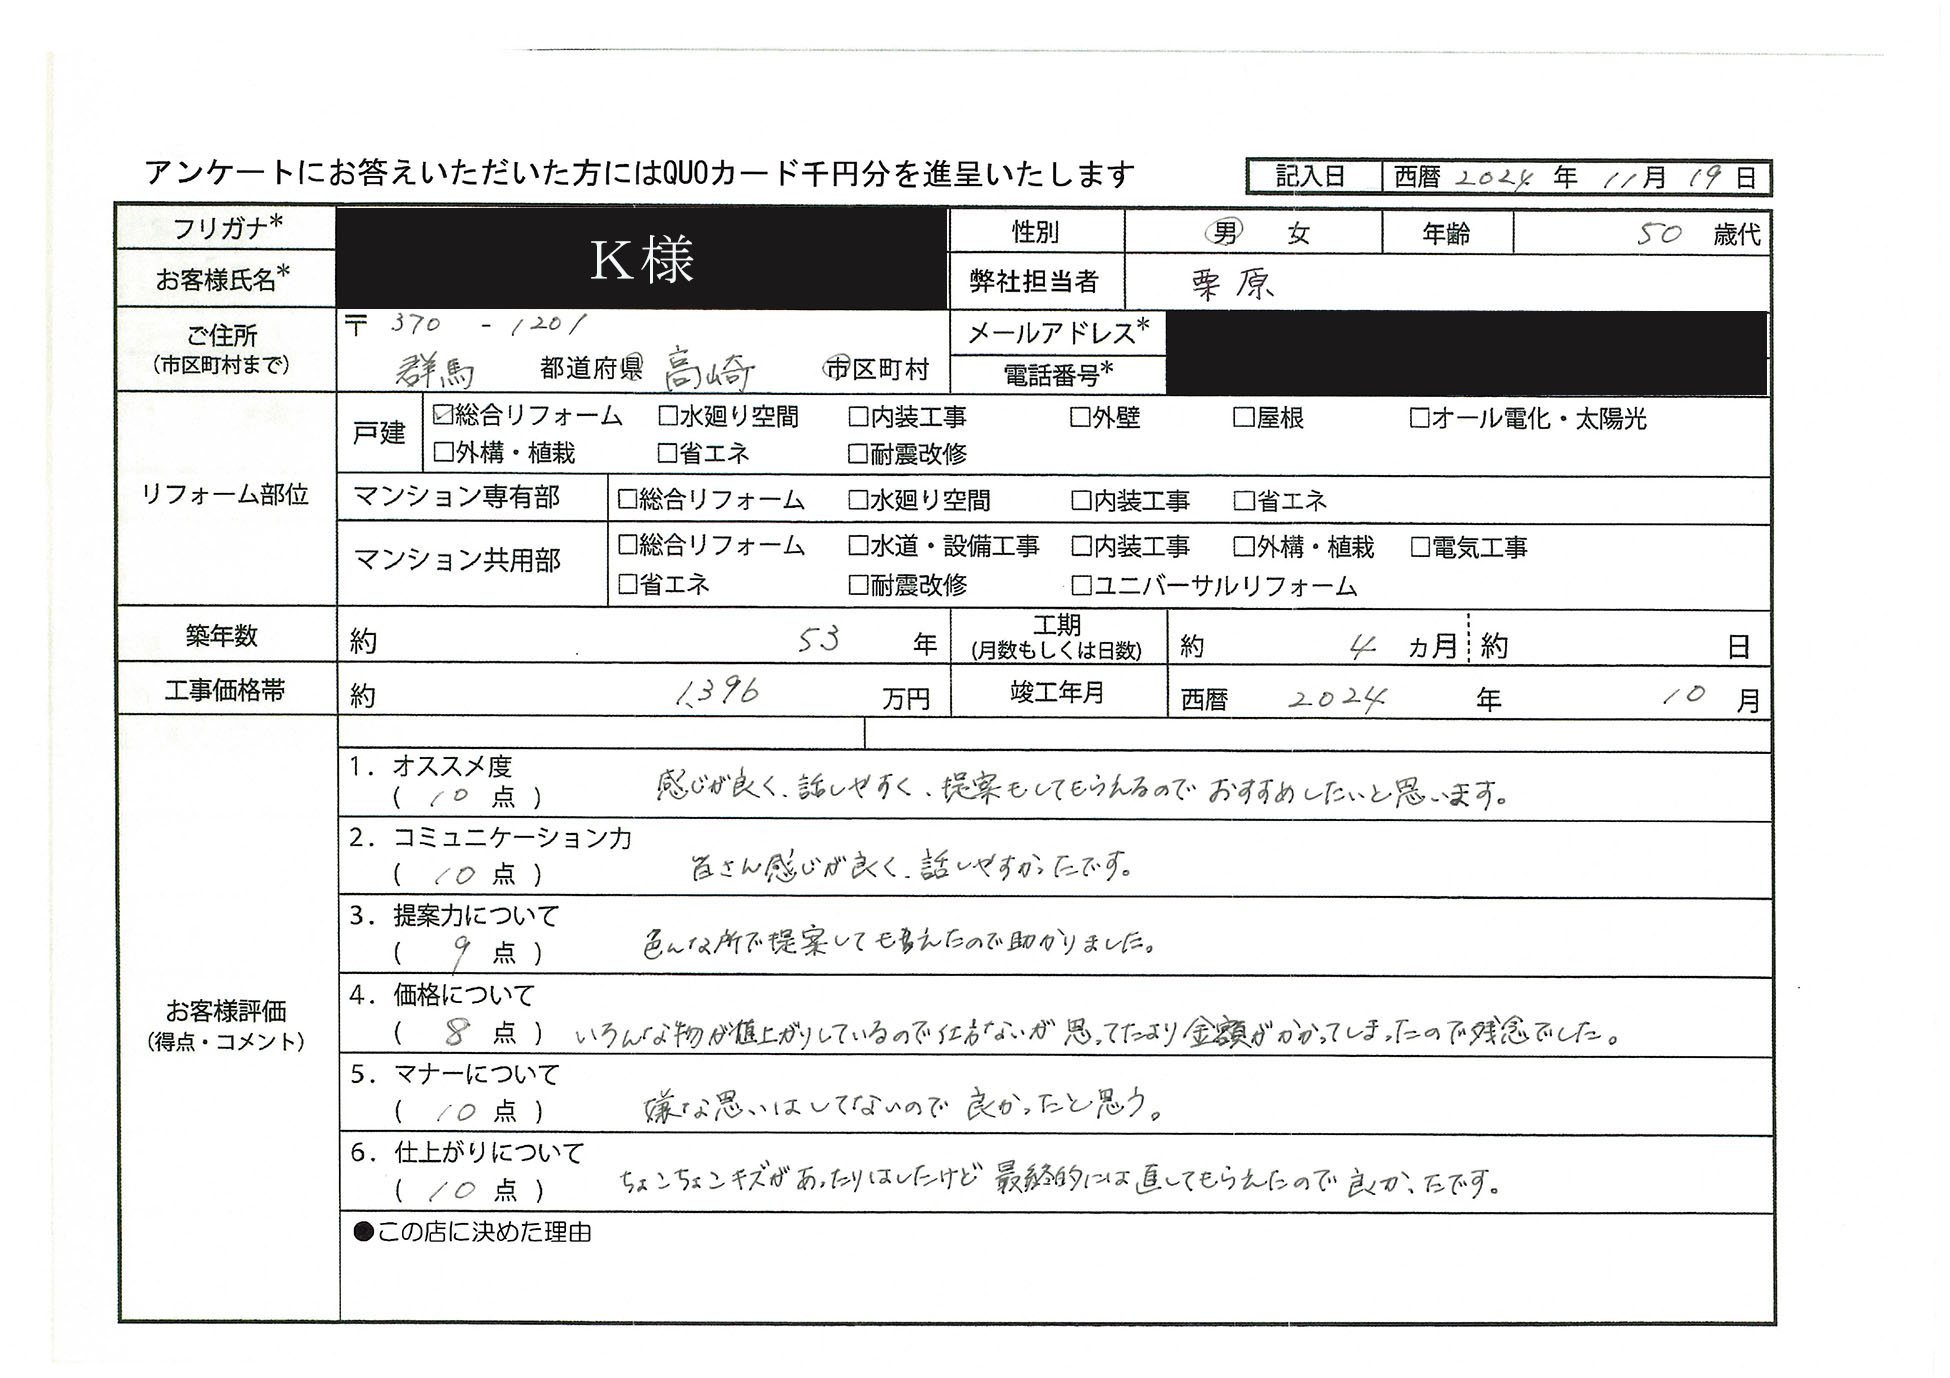 アンケートにお答えいただいた方にはQUOカード千円分を進呈いたします
記入日 西暦 2024 年 11 月 19 日
フリガナ* K様 性別 男 女 年齢 50 歳代
お客様氏名* 弊社担当者 栗原
ご住所 (市区町村まで) 〒 370 - 1201
群馬 都道府県 高崎 市区町村
メールアドレス*
電話番号*
リフォーム部位
戸建 ☑総合リフォーム □水廻り空間 □内装工事 □外壁 □屋根 □オール電化・太陽光
□外構・植栽 □省エネ □耐震改修
マンション専有部 □総合リフォーム □水廻り空間 □内装工事 □省エネ
マンション共用部 □総合リフォーム □水道・設備工事 □内装工事 □外構・植栽 □電気工事
□省エネ □耐震改修 □ユニバーサルリフォーム
築年数 約 53 年 工期 (月数もしくは日数) 約 4 ヵ月 約 日
工事価格帯 約 1,396 万円 竣工年月 西暦 2024 年 10 月
お客様評価
(得点・コメント)
1. オススメ度
( 10 点 ) 感じが良く、話しやすく、提案もしてもらえるのでおすすめしたいと思います。
2. コミュニケーション力
( 10 点 ) 皆さん感じが良く、話しやすかったです。
3. 提案力について
( 9 点 ) 色んな所で提案しても考えたので助かりました。
4. 価格について
( 8 点 ) いろんな物が値上がりしているので仕方ないが思ってたより金額がかかってしまったので残念でした。
5. マナーについて
( 10 点 ) 嫌な思いはしてないので良かったと思う。
6. 仕上がりについて
( 10 点 ) ちょこちょこキズがあったりはしたけど最終的には直してもらえたので良かったです。
●この店に決めた理由